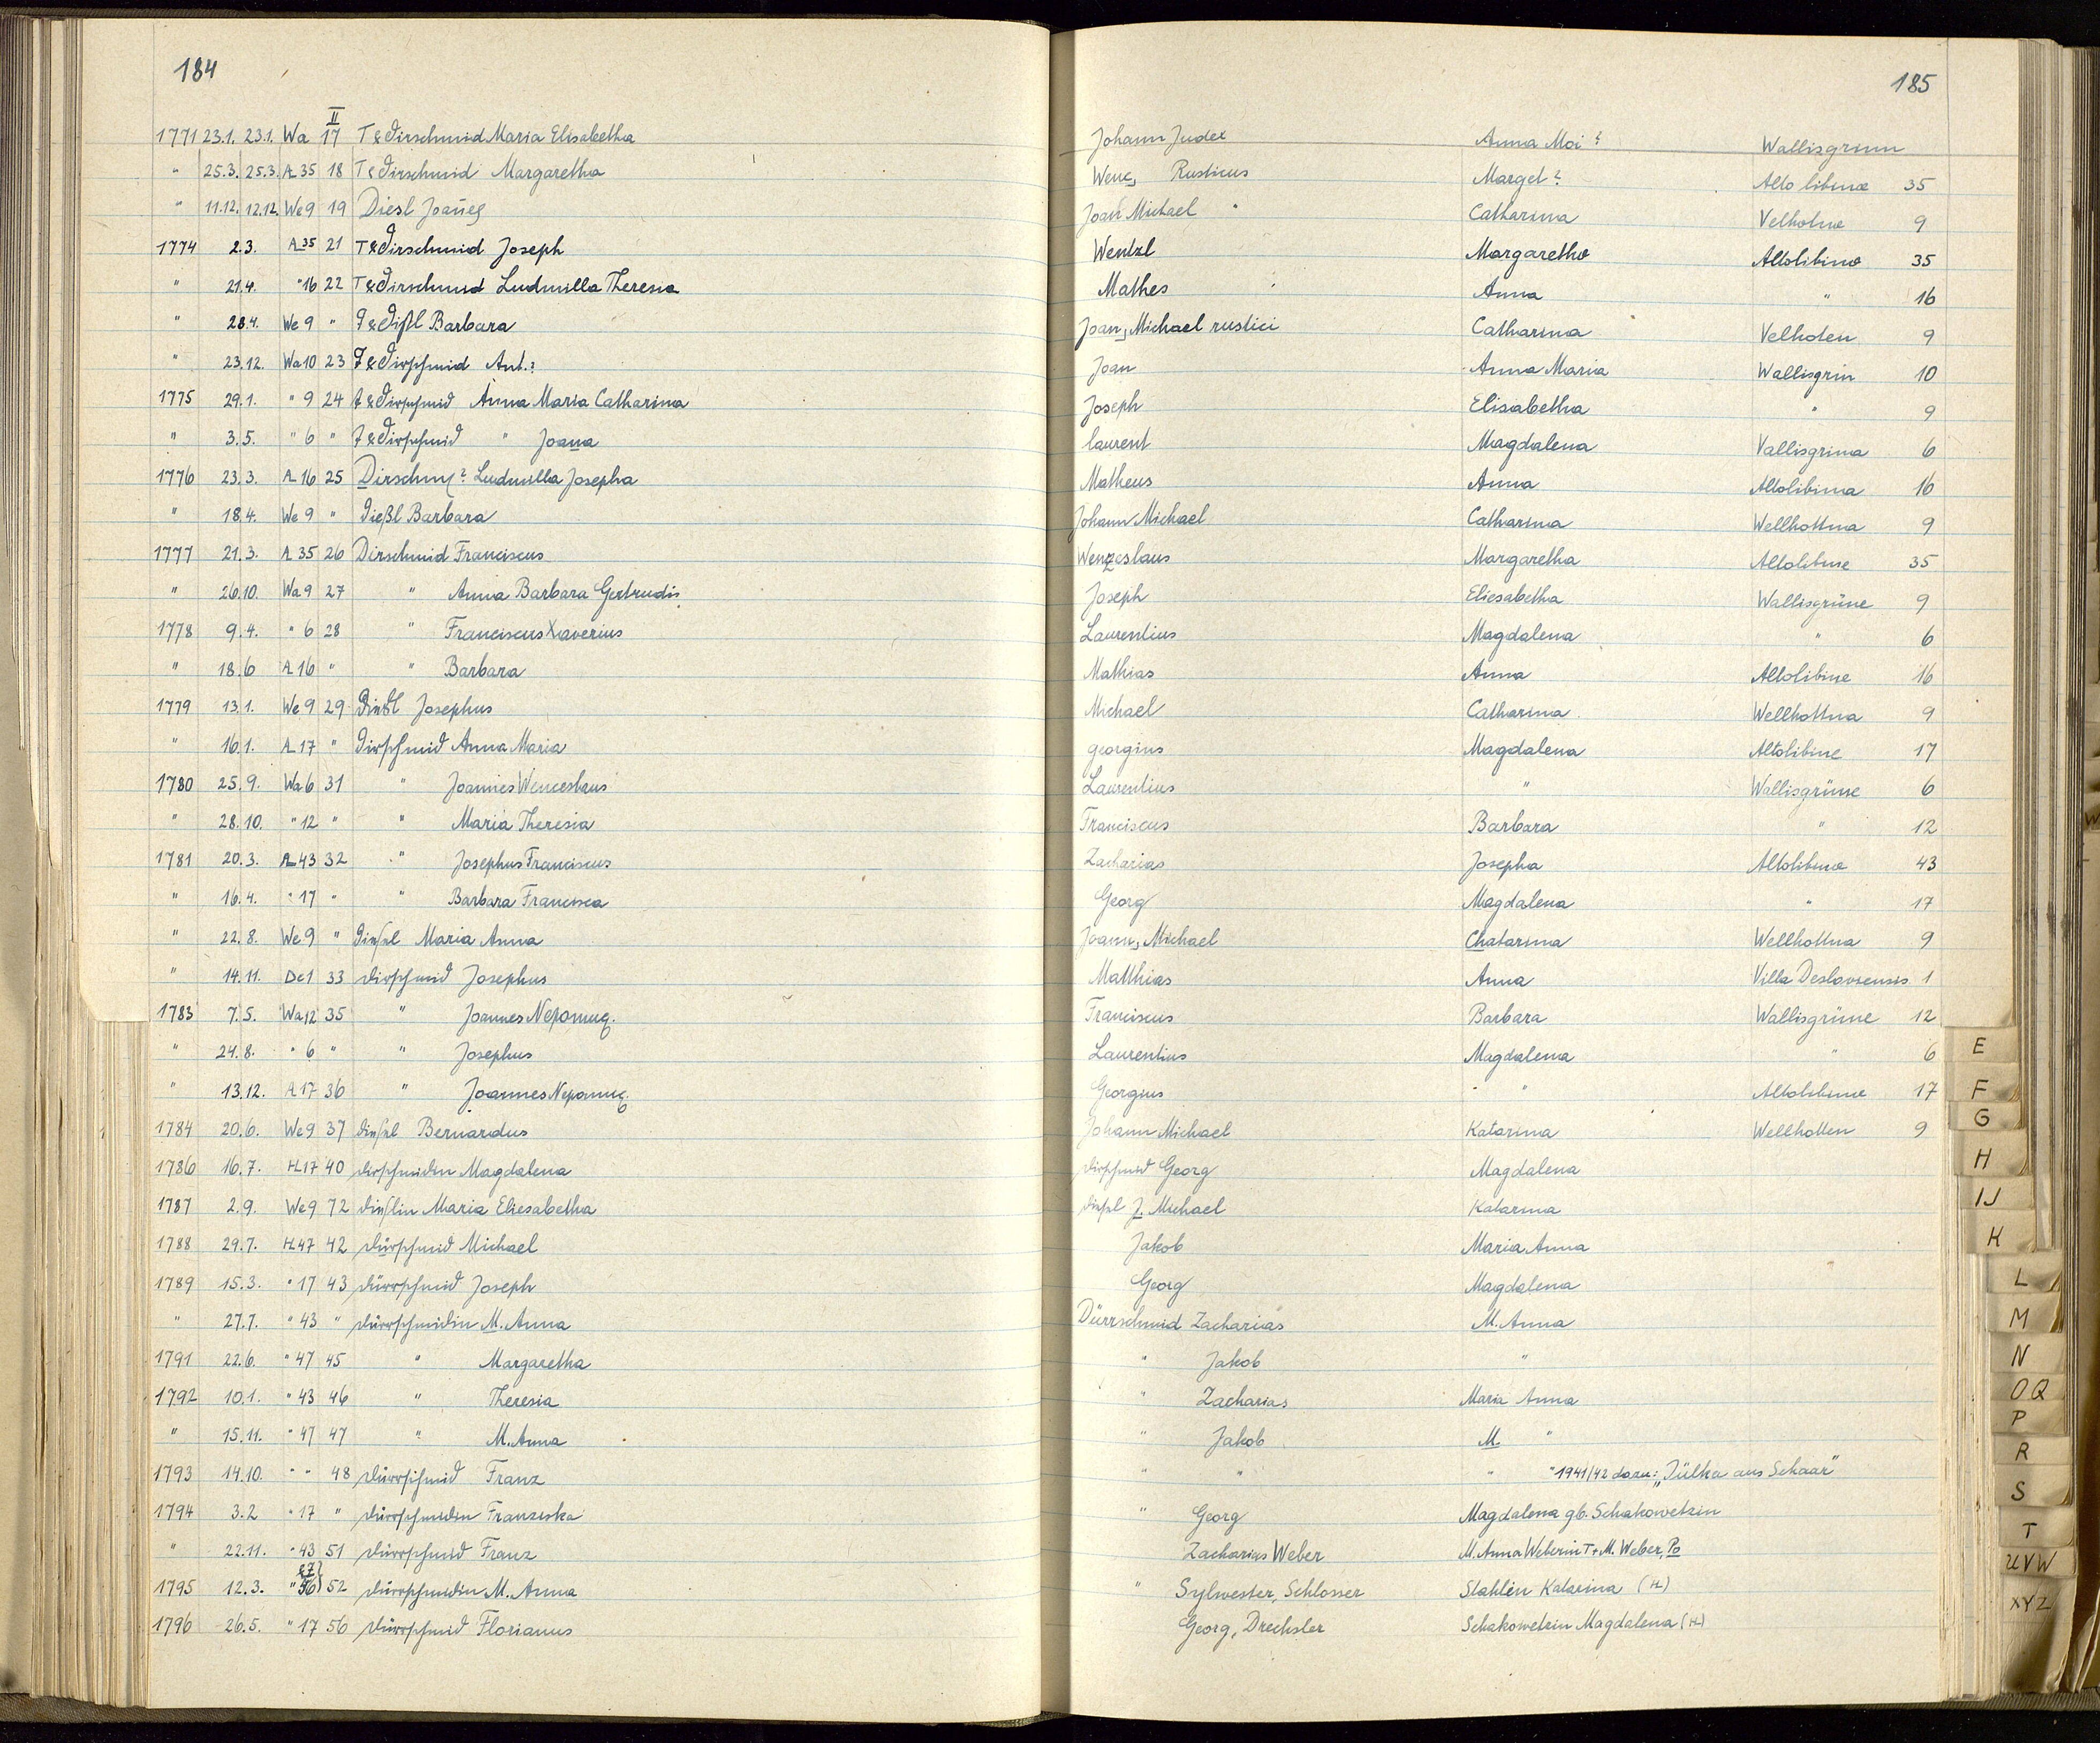 184
185
II
1771 23.1. 23.1. Wa 17 T & Dirschmid Maria Elisabetha Johann Judex Anna Moi ? Wallisgrünn
" 25.3. 25.3. A 35 18 T & Dirschmid Margaretha Wenc, Rusticus Marget ? Alto libinæ 35
" 11.12. 12.12. We 9 19 Diesl Joañeş Joan Michael " Catharina Velhotnæ 9
1774 2.3. A 35 21 T & Dirschmid Joseph Wentzl Margaretha Altolibinæ 35
" 21.4. " 16 22 T & Dirschmid Ludmilla Theresia Mathes Anna " 16
" 28.4. We 9 " T & Dißl Barbara Joan, Michael rustici Catharina Velhoten 9
" 23.12. Wa 10 23 T & Dirschmid Ant.? Joan Anna Maria Wallisgrin 10
1775 29.1. " 9 24 T & Dirschmid Anna Maria Catharina Joseph Elisabetha " 9
" 3.5. " 6 " T & Dirschmid " Joana laurent Magdalena Vallisgrina 6
1776 23.3. A 16 25 Dirschm ? Ludmilla Josepha Matheus Anna Altolibina 16
" 18.4. We 9 " Dießl Barbara Johann Michael Catharina Wellhottna 9
1777 21.3. A 35 26 Dirschmid Franciscus Wenzeslaus Margaretha Altolibine 35
" 26.10. Wa 9 27 " Anna Barbara Gertrudis Joseph Eliesabetha Wallisgrüne 9
1778 9.4. " 6 28 " Franciscus Xaverius Laurentius Magdalena " 6
" 18.6 A 16 " " Barbara Mathias Anna Altolibine 16
1779 13.1. We 9 29 Dießl Josephus Michael Catharina Wellhottna 9
" 16.1. A 17 " Dirschmid Anna Maria georgius Magdalena Altolibine 17
1780 25.9. Wa 6 31 " Joannes Wenceslaus Laurentius " Wallisgrüne 6
" 28.10. " 12 " " Maria Theresia Franciscus Barbara " 12
1781 20.3. A 43 32 " Josephus Franciscus Zacharias Josepha Altolibinæ 43
" 16.4. " 17 " " Barbara Francisca Georg Magdalena " 17
" 22.8. We 9 " Diesel Maria Anna Joann, Michael Chatarina Wellhottna 9
" 14.11. De 1 33 Dirschmid Josephus Matthias Anna Villa Deslaviensis 1
1783 7.5. Wa 12 35 " Joannes Nepomuç. Franciscus Barbara Wallisgrüne 12
" 24.8. " 6 " " Josephus Laurentius Magdalena " 6
" 13.12. A 17 36 " Joannes Nepomuç. Georgius " Altolibine 17
1784 20.6. We 9 37 Diesel Bernardus Johann Michael Katarina Wellhotten 9
1786 16.7. H 17 40 Dirschmidin Magdalena Dirschmid Georg Magdalena
1787 2.9. We 9 72 Dieslin Maria Eliesabetha Diesel J. Michael Katarina
1788 29.7. H 47 42 Dürschmid Michael Jakob Maria Anna
1789 15.3. " 17 43 Dürrschmid Joseph Georg Magdalena
" 27.7. " 43 " Dürrschmidin M. Anna Dürrschmid Zacharias M. Anna
1791 22.6. " 47 45 " Margaretha " Jakob "
1792 10.1. " 43 46 " Theresia " Zacharias Maria Anna
" 15.11. " 47 47 " M. Anna " Jakob M. "
1793 14.10. " " 48 Dürrschmid Franz " " " " 1941/42 dazu: „Jülka aus Schaar"
1794 3.2 " 17 " Dürrschmidin Franziska " Georg Magdalena gb. Schakowetzin
" 22.11. " 43 51 Dürrschmid Franz Zacharias Weber M. Anna Weberin T. + M. Weber, Po
1795 12.3. " 56 52 Dürrschmidin M. Anna " Sylwester, Schlosser Stahlin Katarina (H)
1796 26.5. " 17 56 Dürrschmid Florianus Georg, Drechsler Schakowetzin Magdalena (H)
E
F
G
H
IJ
K
L
M
N
OQ
P
R
S
T
UVW
XYZ